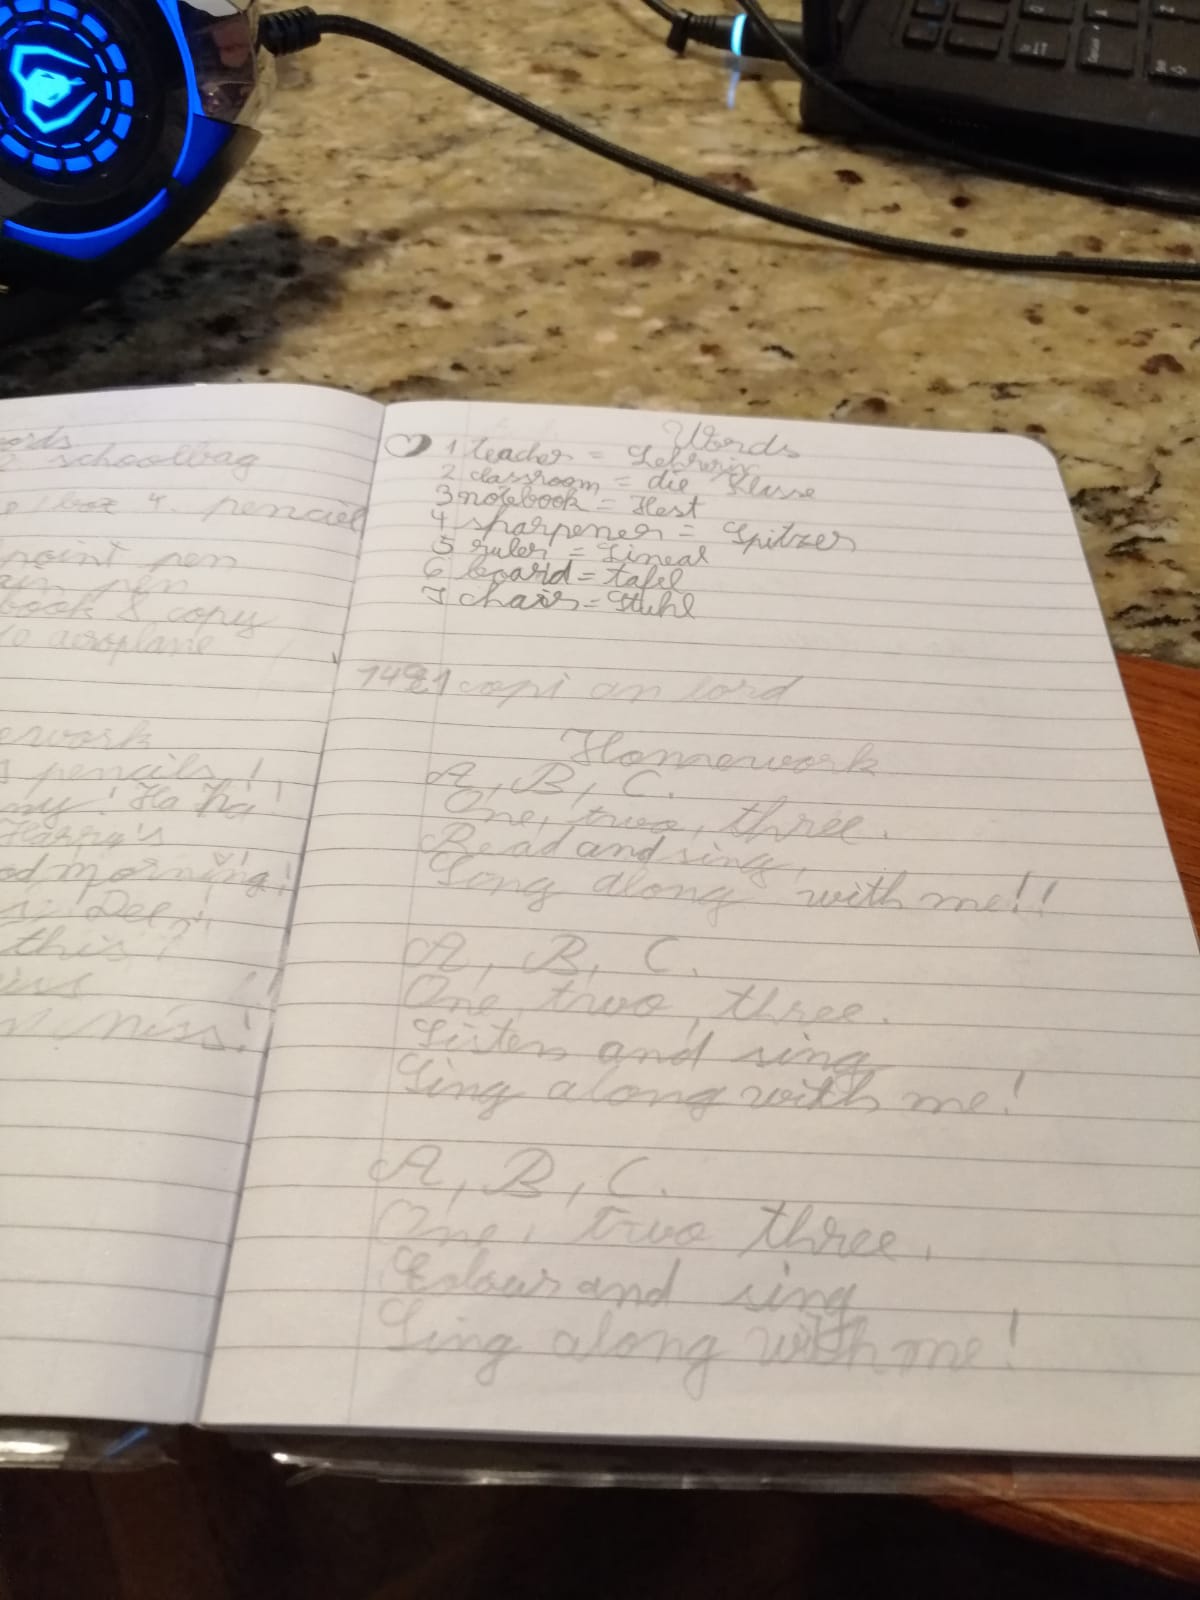 schoolbag
box 4. penciel
point pen
pen
book 8 copy
10 aeroplane
pencils!
Ha ha!
Harry's
morning!
this?
Miss!
Words
1 teacher = Lehrerin
2 classroom = die Klasse
3 notebook = Heft
4 sharpener = Spitzer
5 ruler = Lineal
6 board = tafel
7 chair = Stuhl
copi an lord
Homework
A, B, C.
One, two, three.
Read and sing,
Song along with me!!
A, B, C.
One, two, three.
Listen and sing
Sing along with me!
A, B, C.
One, two three.
Colour and sing
Sing along with me!